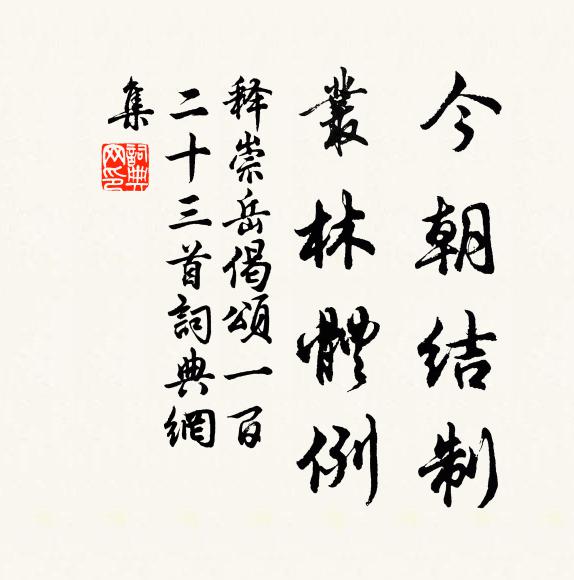 今朝結制
叢林體例
释崇岳偈頌一百
二十三首詞典網
集
詞典網印